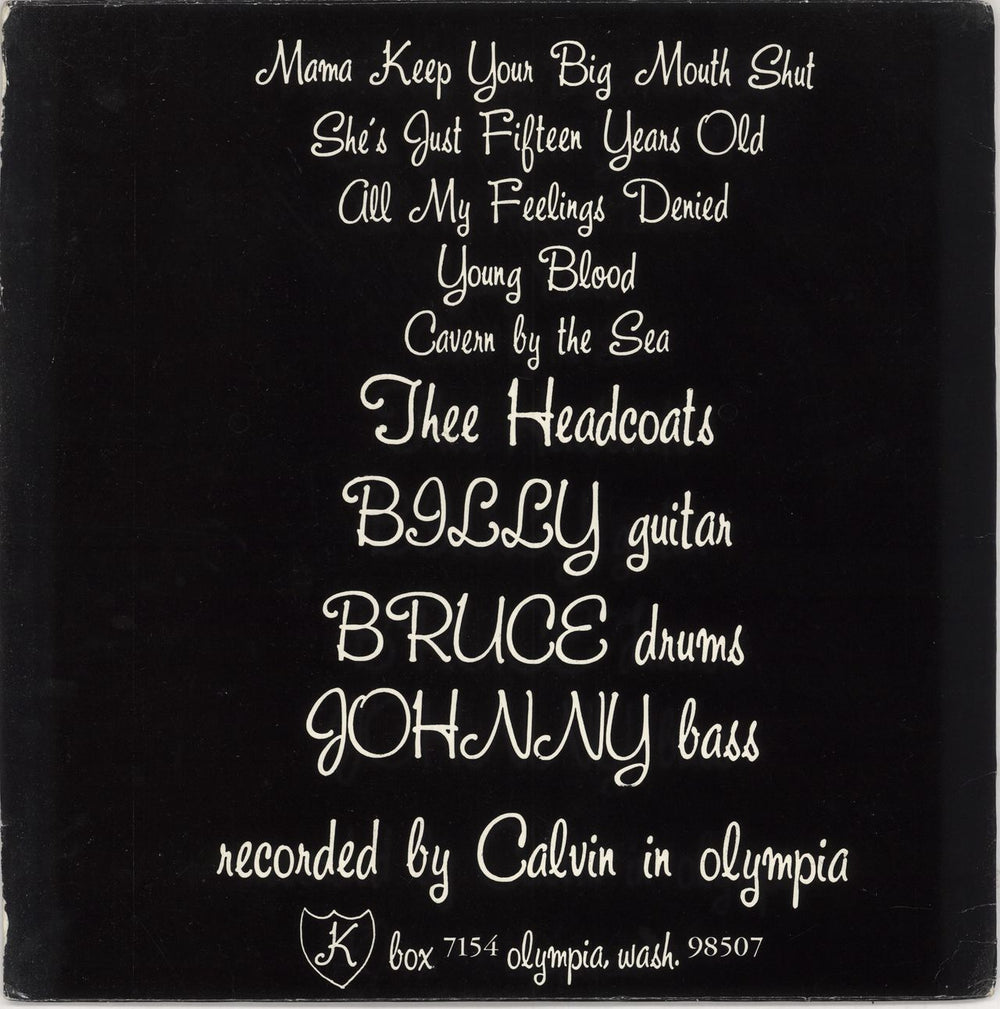 Mama Keep Your Big Mouth Shut
She's Just Fifteen Years Old
All My Feelings Denied
Young Blood
Cavern by the Sea
Thee Headcoats
BILLY guitar
BRUCE drums
JOHNNY bass
recorded by Calvin in olympia
K box 7154 olympia, wash. 98507